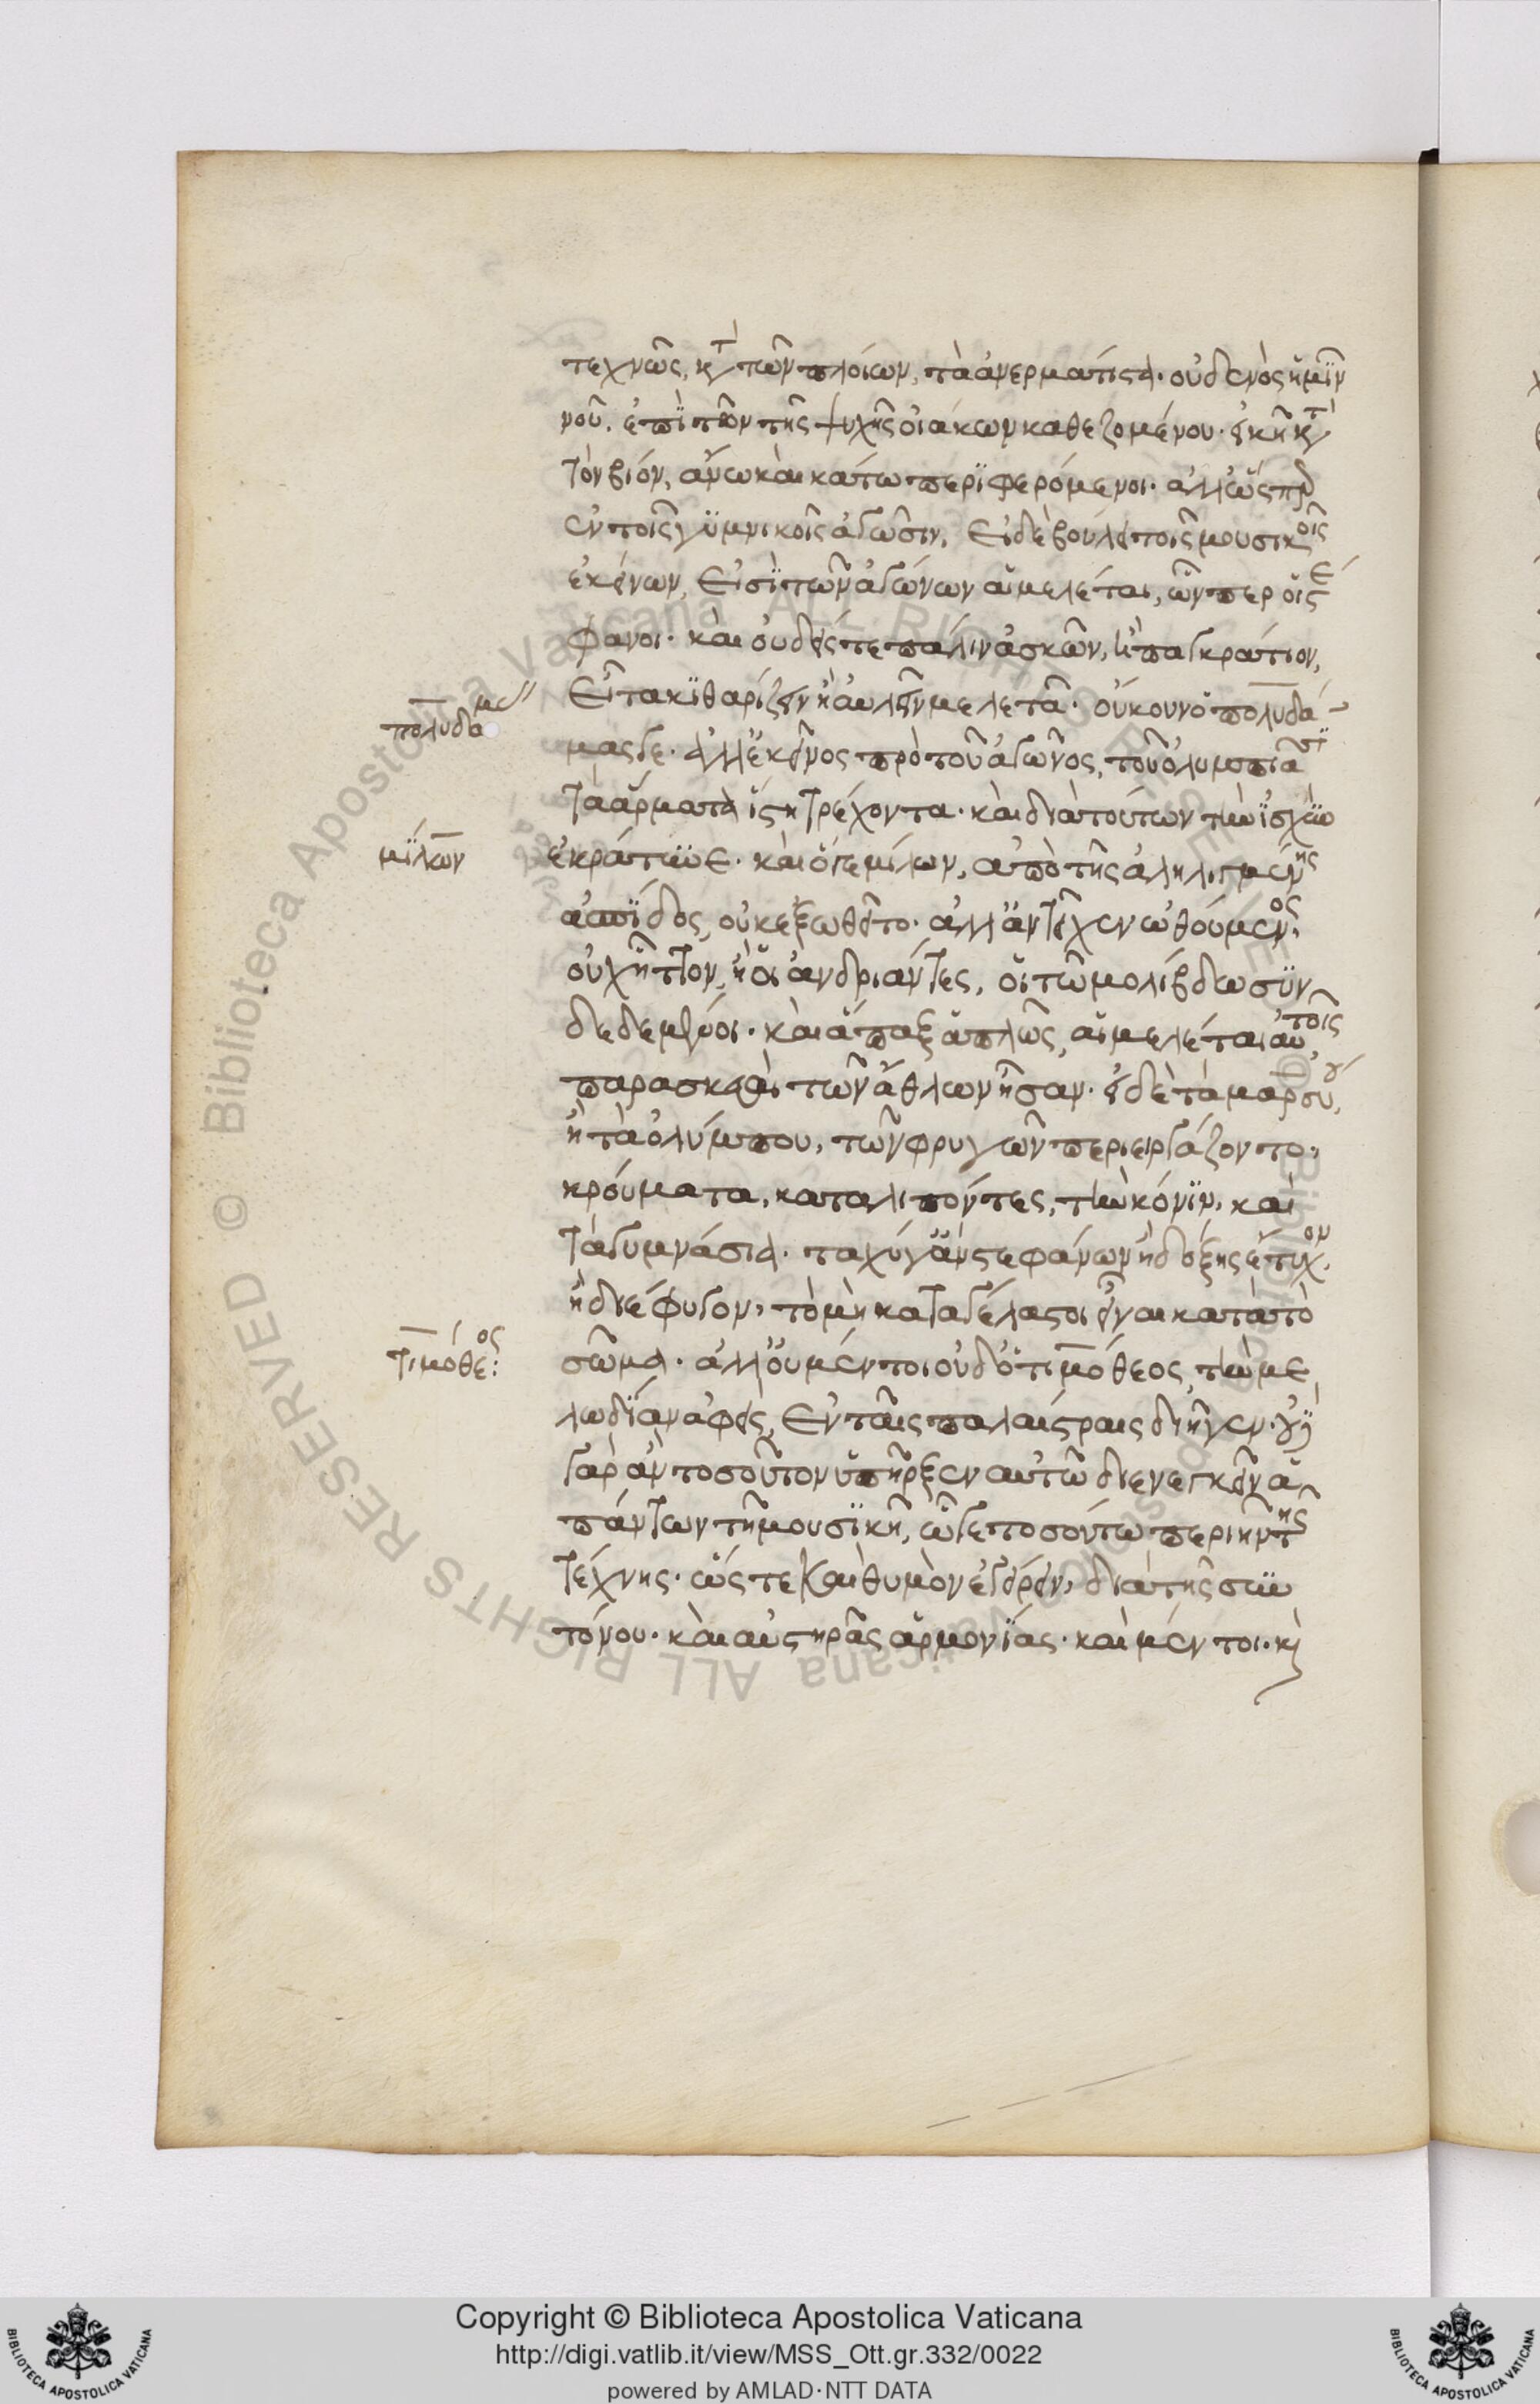 τεχνῶς, κατὰ τῶν πλοίων, τὰ ἀνερμάτιστα. οὐδενὸς ἡμῖν
νοῦ, ἐπὶ τῶν τῆς ψυχῆς οἰάκων καθεζομένου. εἰκῆ κατὰ
τὸν βίον, ἄνω καὶ κάτω περιφερόμενοι. ἀλλ' ὥσπερ
ἐν τοῖς γυμνικοῖς ἀγῶσιν, εἰ δὲ βούλει τοῖς μουσικοῖς
ἐκείνων, εἰσὶ τῶν ἀγώνων αἱ μελέται, ὧνπερ οἱ στέ
φανοι. καὶ οὐδείς τε πάλιν ἀσκῶν, ἢ παγκράτιον,
εἶτα κιθαρίζειν ἢ αὐλεῖν μελετᾶ. οὔκουν ὁ πολυδά
μας γε. ἀλλ' ἐκεῖνος πρὸ τοῦ ἀγῶνος, τοῦ ὀλυμπίασι
τὰ ἅρματα ἵστη τρέχοντα. καὶ διὰ τούτων τὴν ἰσχὺν
ἐκράτυνε. καὶ ὅγε μίλων, ἀπὸ τῆς ἀληλιμμένης
ἀσπίδος, οὐκ ἐξωθεῖτο. ἀλλ' ἀντεῖχεν ὠθούμενος,
οὐχ ἧττον, ἢ οἱ ἀνδριάντες, οἱ τῶ μολίβδω συν
δεδεμένοι. καὶ ἅπαξ ἁπλῶς, αἱ μελέται αὐτοῖς
παρασκευαὶ τῶν ἄθλων ἦσαν. εἰ δὲ τὰ μαρσύου,
ἢ τὰ ὀλύμπου, τῶν φρυγῶν περιειργάζοντο,
κρούματα, καταλιπόντες, τὴν κόνιν, καὶ
τὰ γυμνάσια. ταχύ γ' ἂν στεφάνων ἢ δόξης ἔτυχον,
ἢ διέφυγον, τὸ μὴ καταγέλαστοι εἶναι κατὰ τὸ
σῶμα. ἀλλ' οὐ μέντοι οὐδ' ὁ τιμόθεος, τὴν με
λωδίαν ἀφεὶς, ἐν ταῖς παλαίστραις διῆγεν. οὐ
γὰρ ἂν τοσοῦτον ὑπῆρξεν αὐτῶ διενεγκεῖν ἁ
πάντων τῆ μουσικῆ, ὧγε τοσούτω περιῆν τῆς
τέχνης. ὥστε καὶ θυμὸν ἐγείρειν, διὰ τῆς συν
τόνου. καὶ αὐστηρᾶς ἁρμονίας. καὶ μέντοι. καὶ
πολυδάμας
μίλων
τιμόθεος:
Copyright © Biblioteca Apostolica Vaticana
http://digi.vatlib.it/view/MSS_Ott.gr.332/0022
powered by AMLAD·NTT DATA
BIBLIOTECA APOSTOLICA VATICANA
BIBLIOTECA APOSTOLICA VATICANA
Biblioteca Apostolica Vaticana ALL RIGHTS RESERVED ©